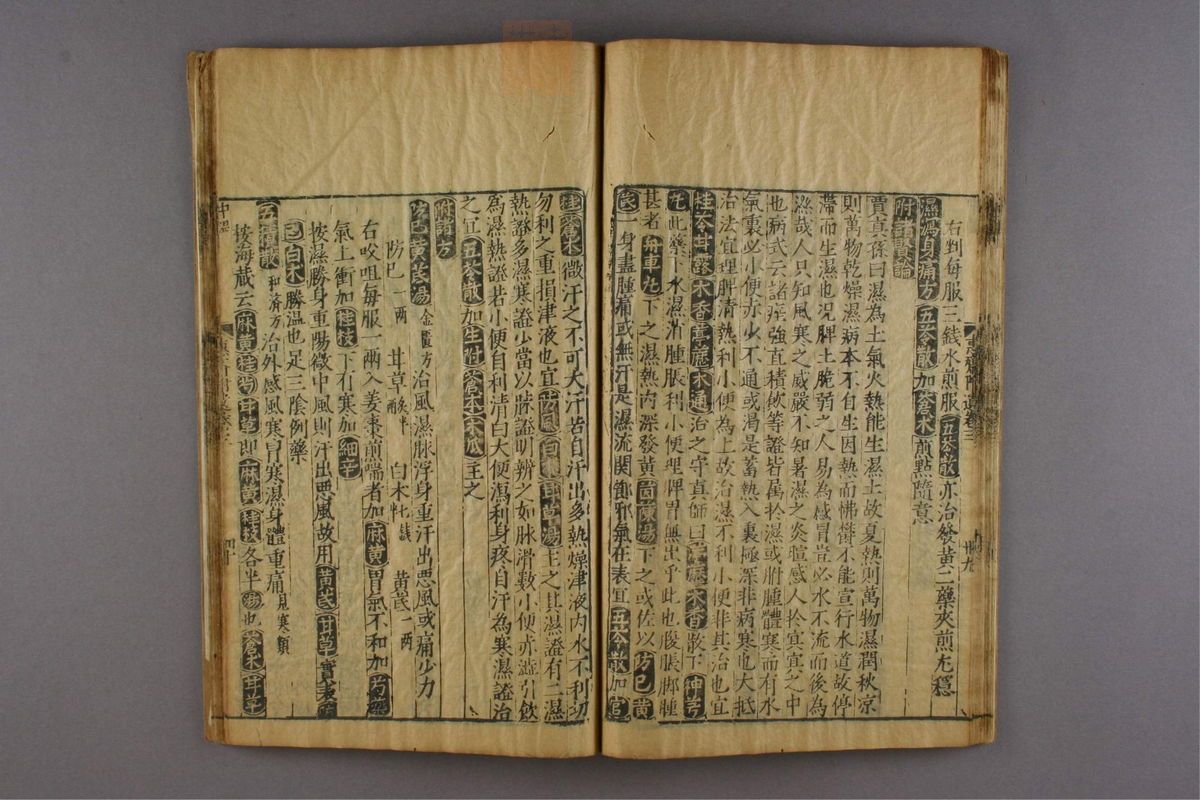 右剉每服三錢水煎服五苓散亦治發黃二藥夾煎尤穩
濕滯身痛方五苓散加蒼朮煎點隨意
附諸賢論
賈真孫曰濕為土氣火熱能生濕土故夏熱則萬物濕潤秋凉
則萬物乾燥濕病本不自生因熱而怫鬱不能宣行水道故停
滯而生濕也況脾土脆弱之人易為感冒豈必水不流而後為
濕哉人只知風寒之威嚴不知暑濕之炎暄感人於冥冥之中
也病式云諸痙強直積飲等證皆属於濕或胕腫體寒而有水
氣裏必小便赤少不通或渴是蓄熱入裏極深非病寒也大抵
治法宜理脾清熱利小便為上故治濕不利小便非其治也宜
桂苓甘露木香葶藶木通治之守真師曰葶藶木香散下神芎
丸此藥下水濕消腫脹利小便理脾胃無出乎此也腹脹脚腫
甚者舟車丸下之濕熱內深發黃茵陳湯下之或佐以防已黃
芪一身盡腫痛或無汗是濕流関節邪氣在表宜五苓散加官
桂蒼朮微汗之不可大汗若自汗出多熱燥津液內水不利切
勿利之重損津液也宜防風白朮甘草湯主之其濕證有二濕
熱證多濕寒證少當以脉證明辨之如脉滑數小便赤澁引飲
為濕熱證若小便自利清白大便瀉利身疼自汗為寒濕證治
之宜五苓散加生附蒼朮木瓜主之
附諸方
防已黃芪湯金匱方治風濕脉浮身重汗出惡風或痛少力
防已一兩 甘草炙半 白朮七錢半 黃芪一兩
右㕮咀每服一兩入姜棗煎喘者加麻黃胃氣不和加芍藥
氣上衝加桂枝下有寒加細辛
按濕勝身重陽微中風則汗出惡風故用黃芪甘草實表防
已白朮勝濕也足三陰例藥
五積散和済方治外感風寒冒寒濕身體重痛見寒類
按海藏云麻黃桂芍甘草即麻黃桂枝各半湯也蒼朮甘草